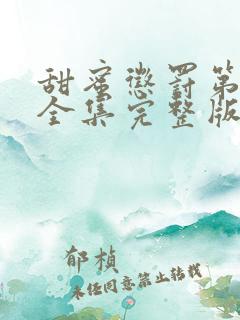 甜蜜惩罚第
全集完整版
郁桢
未经同意禁止转载